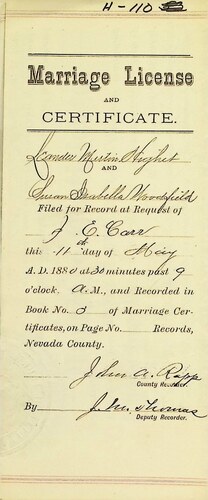 H-110
Marriage License
AND
CERTIFICATE.
Leander Merlin Hughet
AND
Susan Isabella Woodfield
Filed for Record at Request of
J. E. Carr
this 11th day of May
A. D. 1880 at 30 minutes past 9
o'clock. A. M., and Recorded in
Book No. 3 of Marriage Cer-
tificates, on Page No. Records,
Nevada County.
John A. Rapp
County Recorder.
By J. M. Thomas
Deputy Recorder.